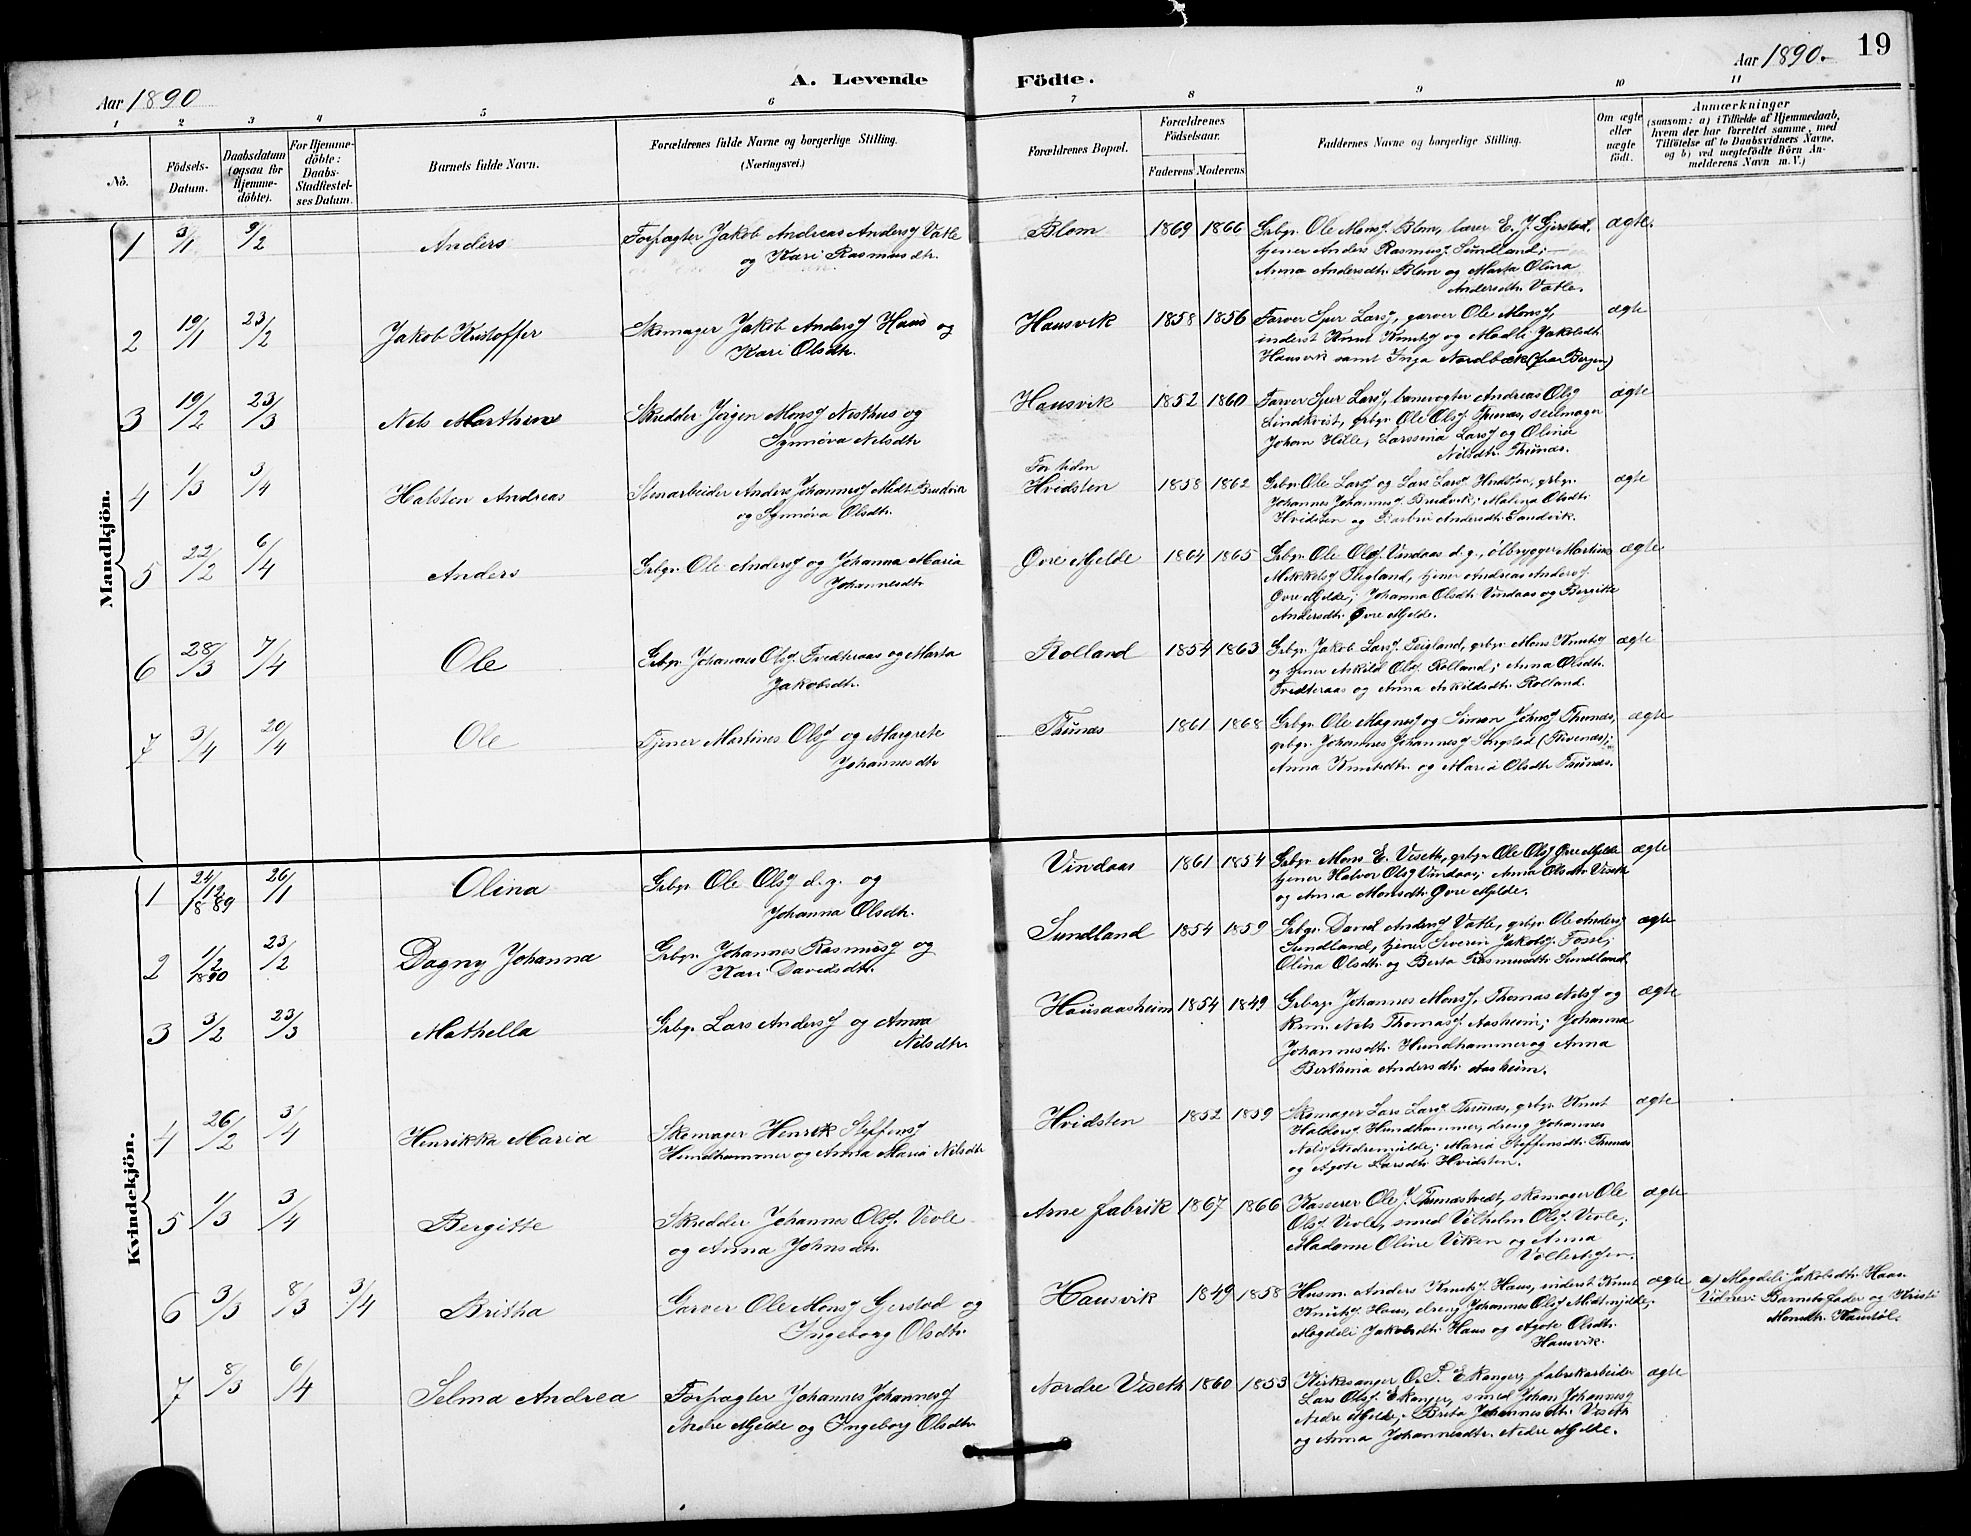 Aar 1890
A. Levende Födte.
Aar 1890.
19
1 2 3 4 5 6 7 8 9 10 11
No.
Födsels-Datum.
Daabsdatum (ogsaa for Hjemmedöbte).
For Hjemmedöbte: Daabs-Stadfæstelses Datum.
Barnets fulde Navn.
Forældrenes fulde Navne og borgerlige Stilling. (Næringsvei.)
Forældrenes Bopæl.
Forældrenes Födselsaar.
Faderens Moderens
Faddernes Navne og borgerlige Stilling.
Om ægte eller uægte födt.
Anmærkninger
(saasom: a) i Tilfælde af Hjemmedaab, hvem der har forrettet samme, med Tilföielse af to Daabsvidners Navne, og b) ved uægtefödte Börn Anmelderens Navn m. V.)
Mandkjön.
1 3/1 9/2 Anders
Forpagter Jakob Andreas Andersj Vatle
og Kari Rasmusdtr.
Blom 1869 1866
Grbgr. Ole Monsj Blom, lærer E. J. Gjerstad,
tjener Anders Rasmusj Sundland;
Anna Andersdtr. Blom og Marta Olina
Andersdtr. Vatle.
ægte.
2 19/1 23/2 Jakob Kristoffer
Skomager Jakob Andersj Haus og
Kari Olsdtr.
Hausvik 1858 1856
Farver Sjur Larsj, garver Ole Monsj,
inderst Knut Knutsj og Madli Jakobsdtr.
Hausvik samt Inga Nordbæk (fra Bergen)
ægte
3 19/2 23/3 Nels Marthin
Skrædder Jørgen Monsj Nesthus og
Synnøva Nelsdtr
Hausvik 1852 1860
Farver Sjur Larsj, banevogter Andreas Olsj
Lindkvist, grbgr. Ole Olsj. Trunæs, seilmager
Johan Hille, Larssina Larsj og Olina
Nelsdtr. Trunæs.
ægte
4 1/3 3/4 Halsten Andreas
Stenarbeider Anders Johannesj Midt-Brudvik
og Synnøva Olsdtr.
For tiden
Hvidsten 1858 1862
Grbgr. Ole Larsj og Lars Larsj Hvidsten, grbgr.
Johannes Johannesj Brudvik; Malena Olsdtr.
Hvidsten og Barbru Andersdtr. Sandvik.
ægte
5 22/2 6/4 Anders
Grbgr. Ole Andersj og Johanna Maria
Johannesdtr
Øvre Mjelde 1864 1865
Grbgr. Ole Olsj. Vindaas d. y., ølbrygger Martinus
Mikkelsj Teigland, tjener Andreas Andersj
Øvre Mjelde; Johanna Olsdtr. Vindaas og Bergitte
Andersdtr. Øvre Mjelde.
ægte
6 28/3 7/4 Ole
Grbgr. Johannes Olsj. Tvedteraas og Marta
Jakobsdtr.
Rolland 1854 1863
Grbgr. Jakob Larsj. Teigland, grbgr. Mons Knutsj
og tjener Askild Olsj. Rolland; Anna Olsdtr.
Tvedteraas og Anna Askildsdtr. Rolland.
ægte
7 3/4 20/4 Ole
Tjener Martines Olsj og Margrete
Johannesdtr
Trunæs 1861 1868
Grbgr. Ole Magnesj og Simon Johnsj Trunæs,
grbgr. Johannes Johannesj Songstad
Anna Knutsdtr. og Maria Olsdtr. Trunæs.
ægte
Kvindekjön.
1 24/12 1889 26/1 Olina
Grbgr. Ole Olsj d. y. og
Johanna Olsdtr.
Vindaas 1861 1854
Grbgr. Mons E. Viseth, grbgr. Ole Olsj Øvre Mjelde
tjener Halvor Olsj Vindaas; Anna Olsdtr. Viseth
og Anna Monsdtr. Øvre Mjelde.
ægte
2 1/2 1890 23/2 Dagny Johanna
Grbgr. Johannes Rasmusj og
Kari Davidsdtr.
Sundland 1854 1859
Grbgr. David Andersj Vatle, grbgr. Ole Andersj
Sundland, tjener Severin Jakobsj. Fosse;
Olina Olsdtr. og Berta Rasmusdtr. Sundland
ægte
3 3/2 23/3 Mathella
Grbgr. Lars Andersj og Anna
Nelsdtr.
Hausaasheim 1854 1849
Grbgr. Johannes Monsj, Thomas Nelsj og
Nels Thomasj. Aasheim; Johanna
Johannesdtr. Hundhammer og Anna
Berthina Andersdtr. Aasheim.
ægte
4 26/2 3/4 Henrikka Maria
Skomager Henrik Steffensj
Hundhammer og Anna Maria Nelsdtr
Hvidsten 1852 1859
Skomager Lars Larsj. Trunæs, grbgr. Knut
Haldorsj Hundhammer, dreng Johannes
Nelsj Nedremjelde; Maria Steffensdtr. Trunæs
og Agote Larsdtr. Hvidsten.
ægte
5 1/3 3/4 Bergitte
Skrædder Johannes Olsj. Vevle
og Anna Johnsdtr.
Arne fabrik 1867 1866
Kaserer Ole J. Trunæstvedt, skomager Ole
Olsj. Vevle, smed Vilhelm Olsj. Vevle;
Madame Oline Viken og Anna
ægte
6 3/3 8/3 3/4 Britha
Garver Ole Monsj Gjerstad og
Ingeborg Olsdtr.
Hausvik 1849 1858
Husm. Anders Knutsj. Haus, inderst Knut
Knutsj Haus, dreng Johannes Olsj Midtmjelde;
Magdeli Jakobsdtr. Haus og Agote Olsdtr.
Hausvik.
ægte
a) Magdeli Jakobsdtr. Haus.
Vidner: Barnets fader og Kristi
Monsdtr.
7 8/3 6/4 Selma Andrea
Forpagter Johannes Johannesj
Nedre Mjelde og Ingeborg Olsdtr
Nordre Viseth 1860 1853
Kirkesanger O. S. Ekanger, fabrikarbeider
Lars Olsj. Ekanger, smed Johan Johannesj
Nedre Mjelde; Brita Johannesdtr. Viseth
og Anna Johannesdtr. Nedre Mjelde.
ægte